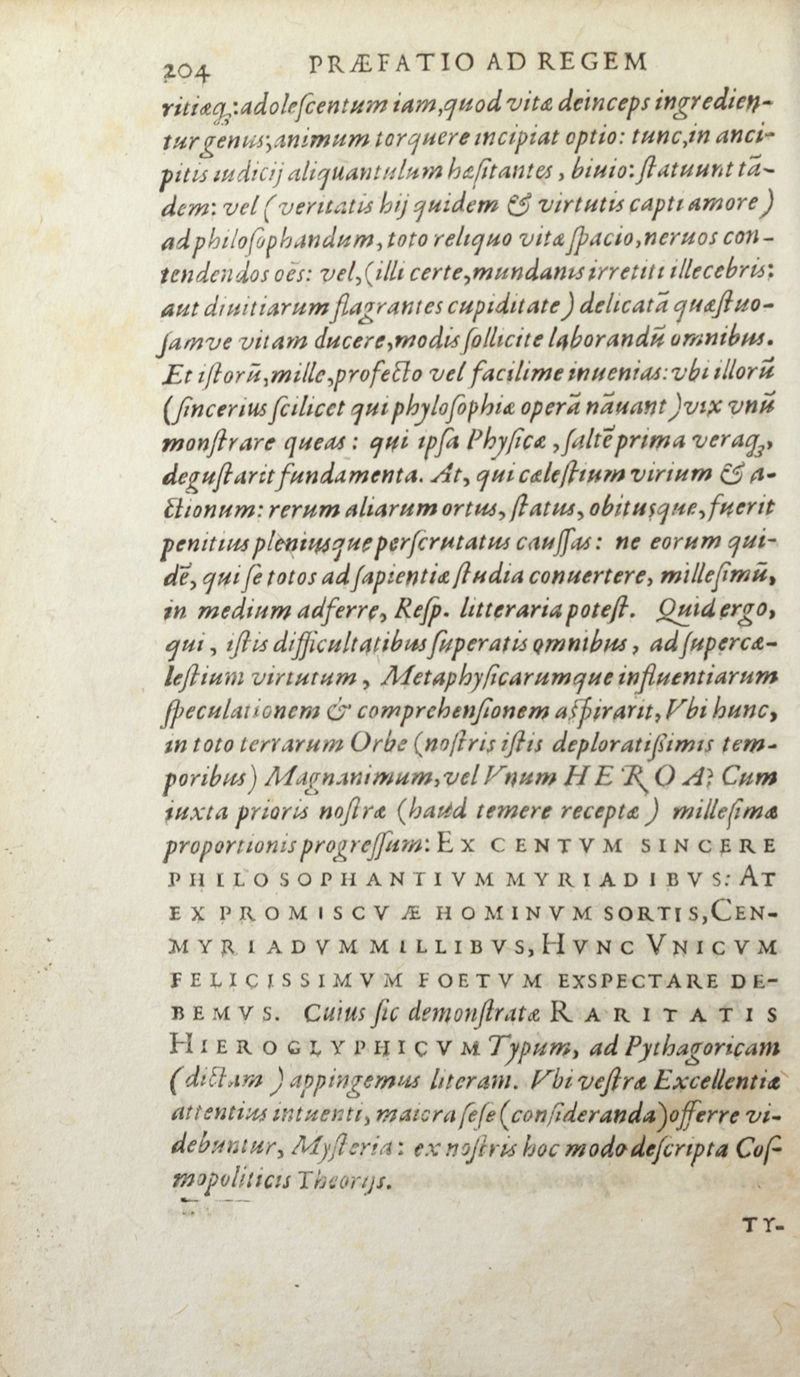 204 PRÆFATIO AD REGEM
ritiæq́;:adoleſcentum iam,quod vitæ deinceps ingredien-
tur genus,animum torquere incipiat optio: tunc,in anci-
pitis iudicij aliquantulum hæſitantes, biuio:ſtatuunt tã-
dem: vel (veritatis hij quidem & virtutis capti amore)
ad philoſophandum, toto reliquo vitæ ſpacio,neruos con-
tendendos oẽs: vel,(illi certe,mundanis irretiti illecebris:
aut diuitiarum flagrantes cupiditate) delicatã quæſtuo-
ſamve vitam ducere,modis ſollicite laborandũ omnibus.
Et iſtorũ,mille,profecto vel facilime inuenias:vbi illorũ
(ſincerius ſcilicet qui phyloſophiæ operã nãuant)vix vnũ
monſtrare queas: qui ipſa Phyſicæ ,ſaltẽ prima veraq́;,
deguſtarit fundamenta. At, qui cæleſtium virium & a-
ctionum: rerum aliarum ortus, ſtatus, obitusque,fuerit
penitius pleniusque perſcrutatus cauſſas: ne eorum qui-
dẽ, qui ſe totos ad ſapientiæ ſtudia conuertere, milleſimũ,
in medium adferre, Reſp. litteraria poteſt. Quid ergo,
qui, iſtis difficultatibus ſuperatis omnibus, ad ſupercæ-
leſtium virtutum, Metaphyſicarumque influentiarum
ſpeculationem & comprehenſionem aſpirarit, Vbi hunc,
in toto terrarum Orbe (noſtris iſtis deploratiſſimis tem-
poribus) Magnanimum,vel Vnum HEROA? Cum
iuxta prioris noſtræ (haud temere receptæ) milleſimæ
proportionis progreſſum: EX CENTVM SINCERE
PHILOSOPHANTIVM MYRIADIBVS: AT
EX PROMISCVÆ HOMINVM SORTIS,CEN-
MYRIADVM MILLIBVS, HVNC VNICVM
FELICISSIMVM FOETVM EXSPECTARE DE-
BEMVS. Cuius ſic demonſtratæ RARITATIS
HIEROGLYPHICVM Typum, ad Pythagoricam
(dictam) appingemus literam. Vbi veſtræ Excellentiæ
attentius intuenti, maiora ſeſe (conſideranda)offerre vi-
debuntur, Myſteria: ex noſtris hoc modo deſcripta Coſ-
mopoliticis Theorijs.
TY-